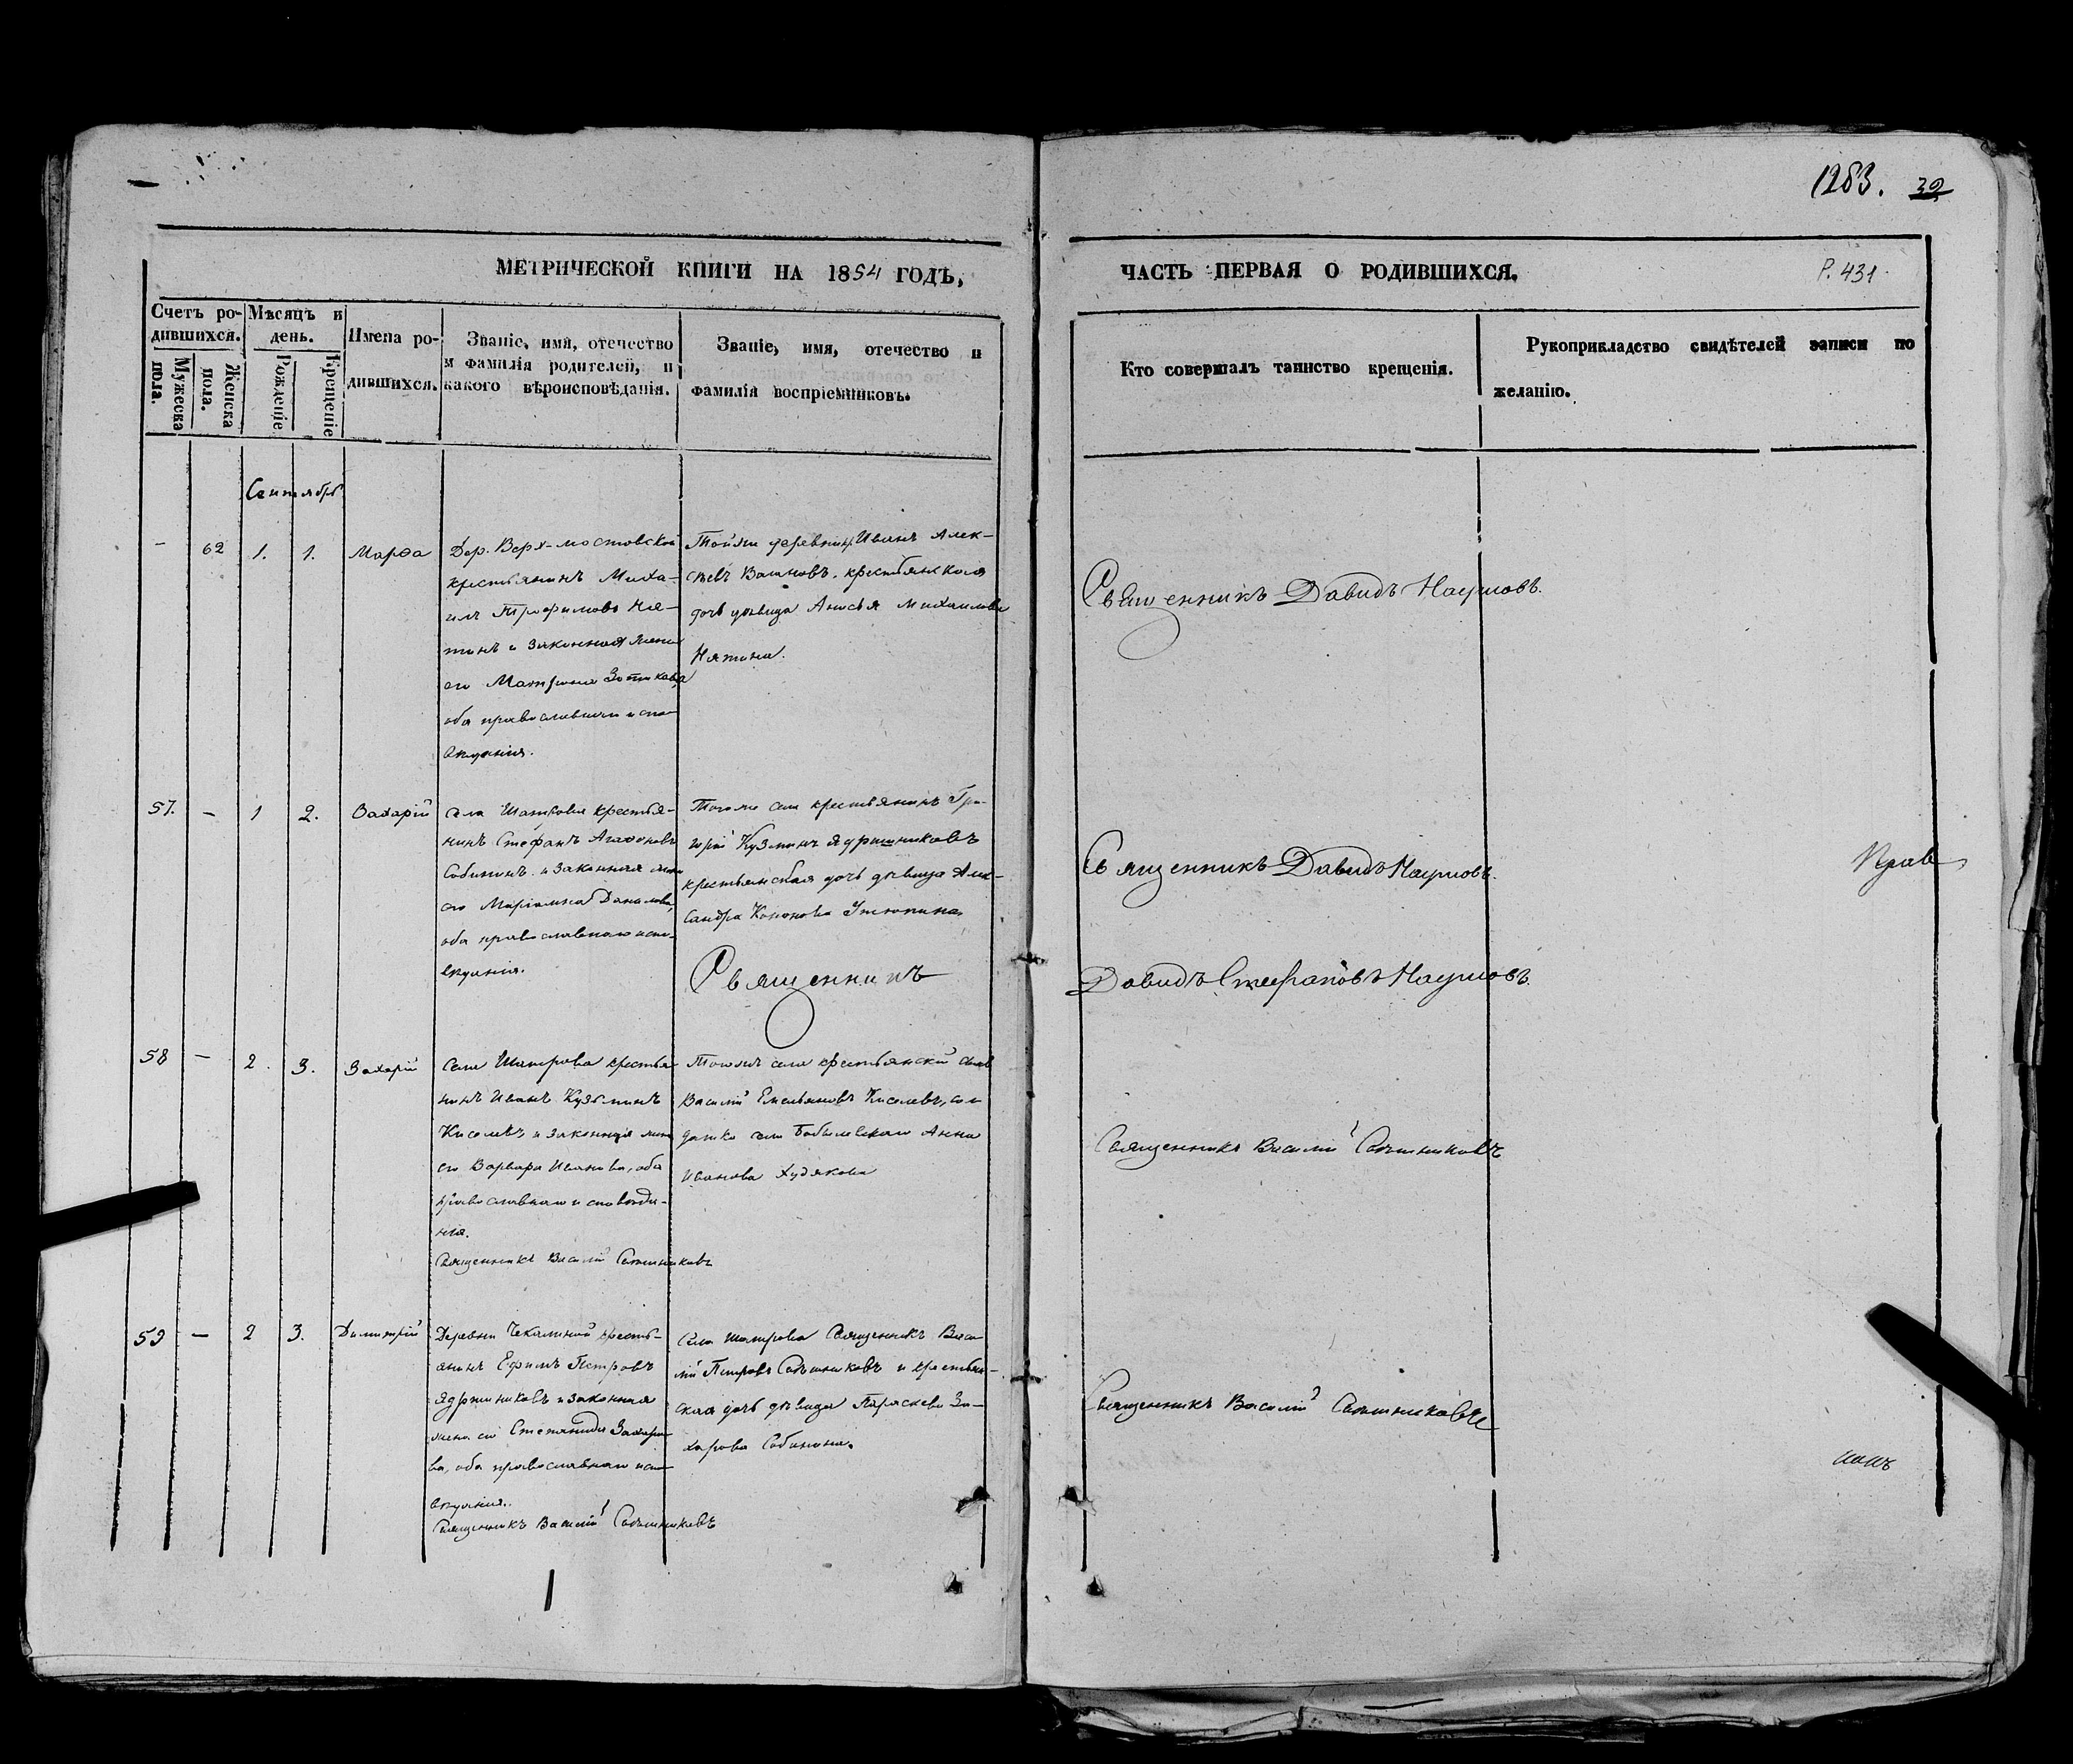 1283. 32
МЕТРИЧЕСКОЙ КНИГИ НА 1854 ГОДЪ,
ЧАСТЬ ПЕРВАЯ О РОДИВШИХСЯ.
Р. 431
Счетъ ро-
дившихся.
Мужеска
пола.
Женска
пола.
Мѣсяцъ и
день.
Рожденіе
Крещеніе
Имена ро-
дившихся.
Званіе, имя, отечество
и фамилія родителей, и
какого вѣроисповѣданія.
Званіе, имя, отечество и
фамилія воспріемниковъ.
Кто совершалъ таинство крещенія.
Рукоприкладство свидѣтелей записи по
желанію.
Сентябрь
– 62 1. 1. Марѳа
Дер. Верх-мостовской
крестьянинъ Миха-
илъ Трофимовъ Ня-
тинъ и законная жена
его Матрона Зотикова,
оба православнаго испо-
вѣданія.
Тойже деревни Иванъ Алек-
сѣевъ крестьянская
дочь дѣвица Анисья Михаилова
Нятина.
Священникъ Давидъ Наумовъ.
57. – 1 2. Захарій
Села Шатрова крестья-
нинъ Стефанъ Агафоновъ
Собининъ и законная жена
его Маріамна Данилова,
оба православнаго испо-
вѣданія.
Тогоже села крестьянинъ Гри-
горій Кузминъ Ядришниковъ
крестьянская дочь дѣвица Алек-
сандра Кононова Утюпина.
Священникъ
Священникъ Давидъ Наумовъ.
Давидъ Стефановъ Наумовъ.
Прав
58 – 2. 3. Захарій
Села Шатрова крестья-
нинъ Иванъ Кузьминъ
Киселевъ и законная жена
его Варвара Иванова, оба
православнаго исповѣда-
нія.
Священникъ Василій
Тогожъ села крестьянскій сынъ
Василій Емельяновъ Киселевъ, сол
датка села Бобылевскаго Анна
Иванова Худякова
Священникъ Василій
59 – 2 3. Димитрій
Деревни Чекалиной кресть-
янинъ Ефимъ Петровъ
Ядришниковъ и законная
жена его Степанида Захаро-
ва, оба православнаго испо-
вѣданія.
Священникъ Василій
Села Шатрова Священникъ Васи-
лій Петровъ и крестьян-
ская дочь дѣвица Параскева За-
харова Собинина.
Священникъ Василій